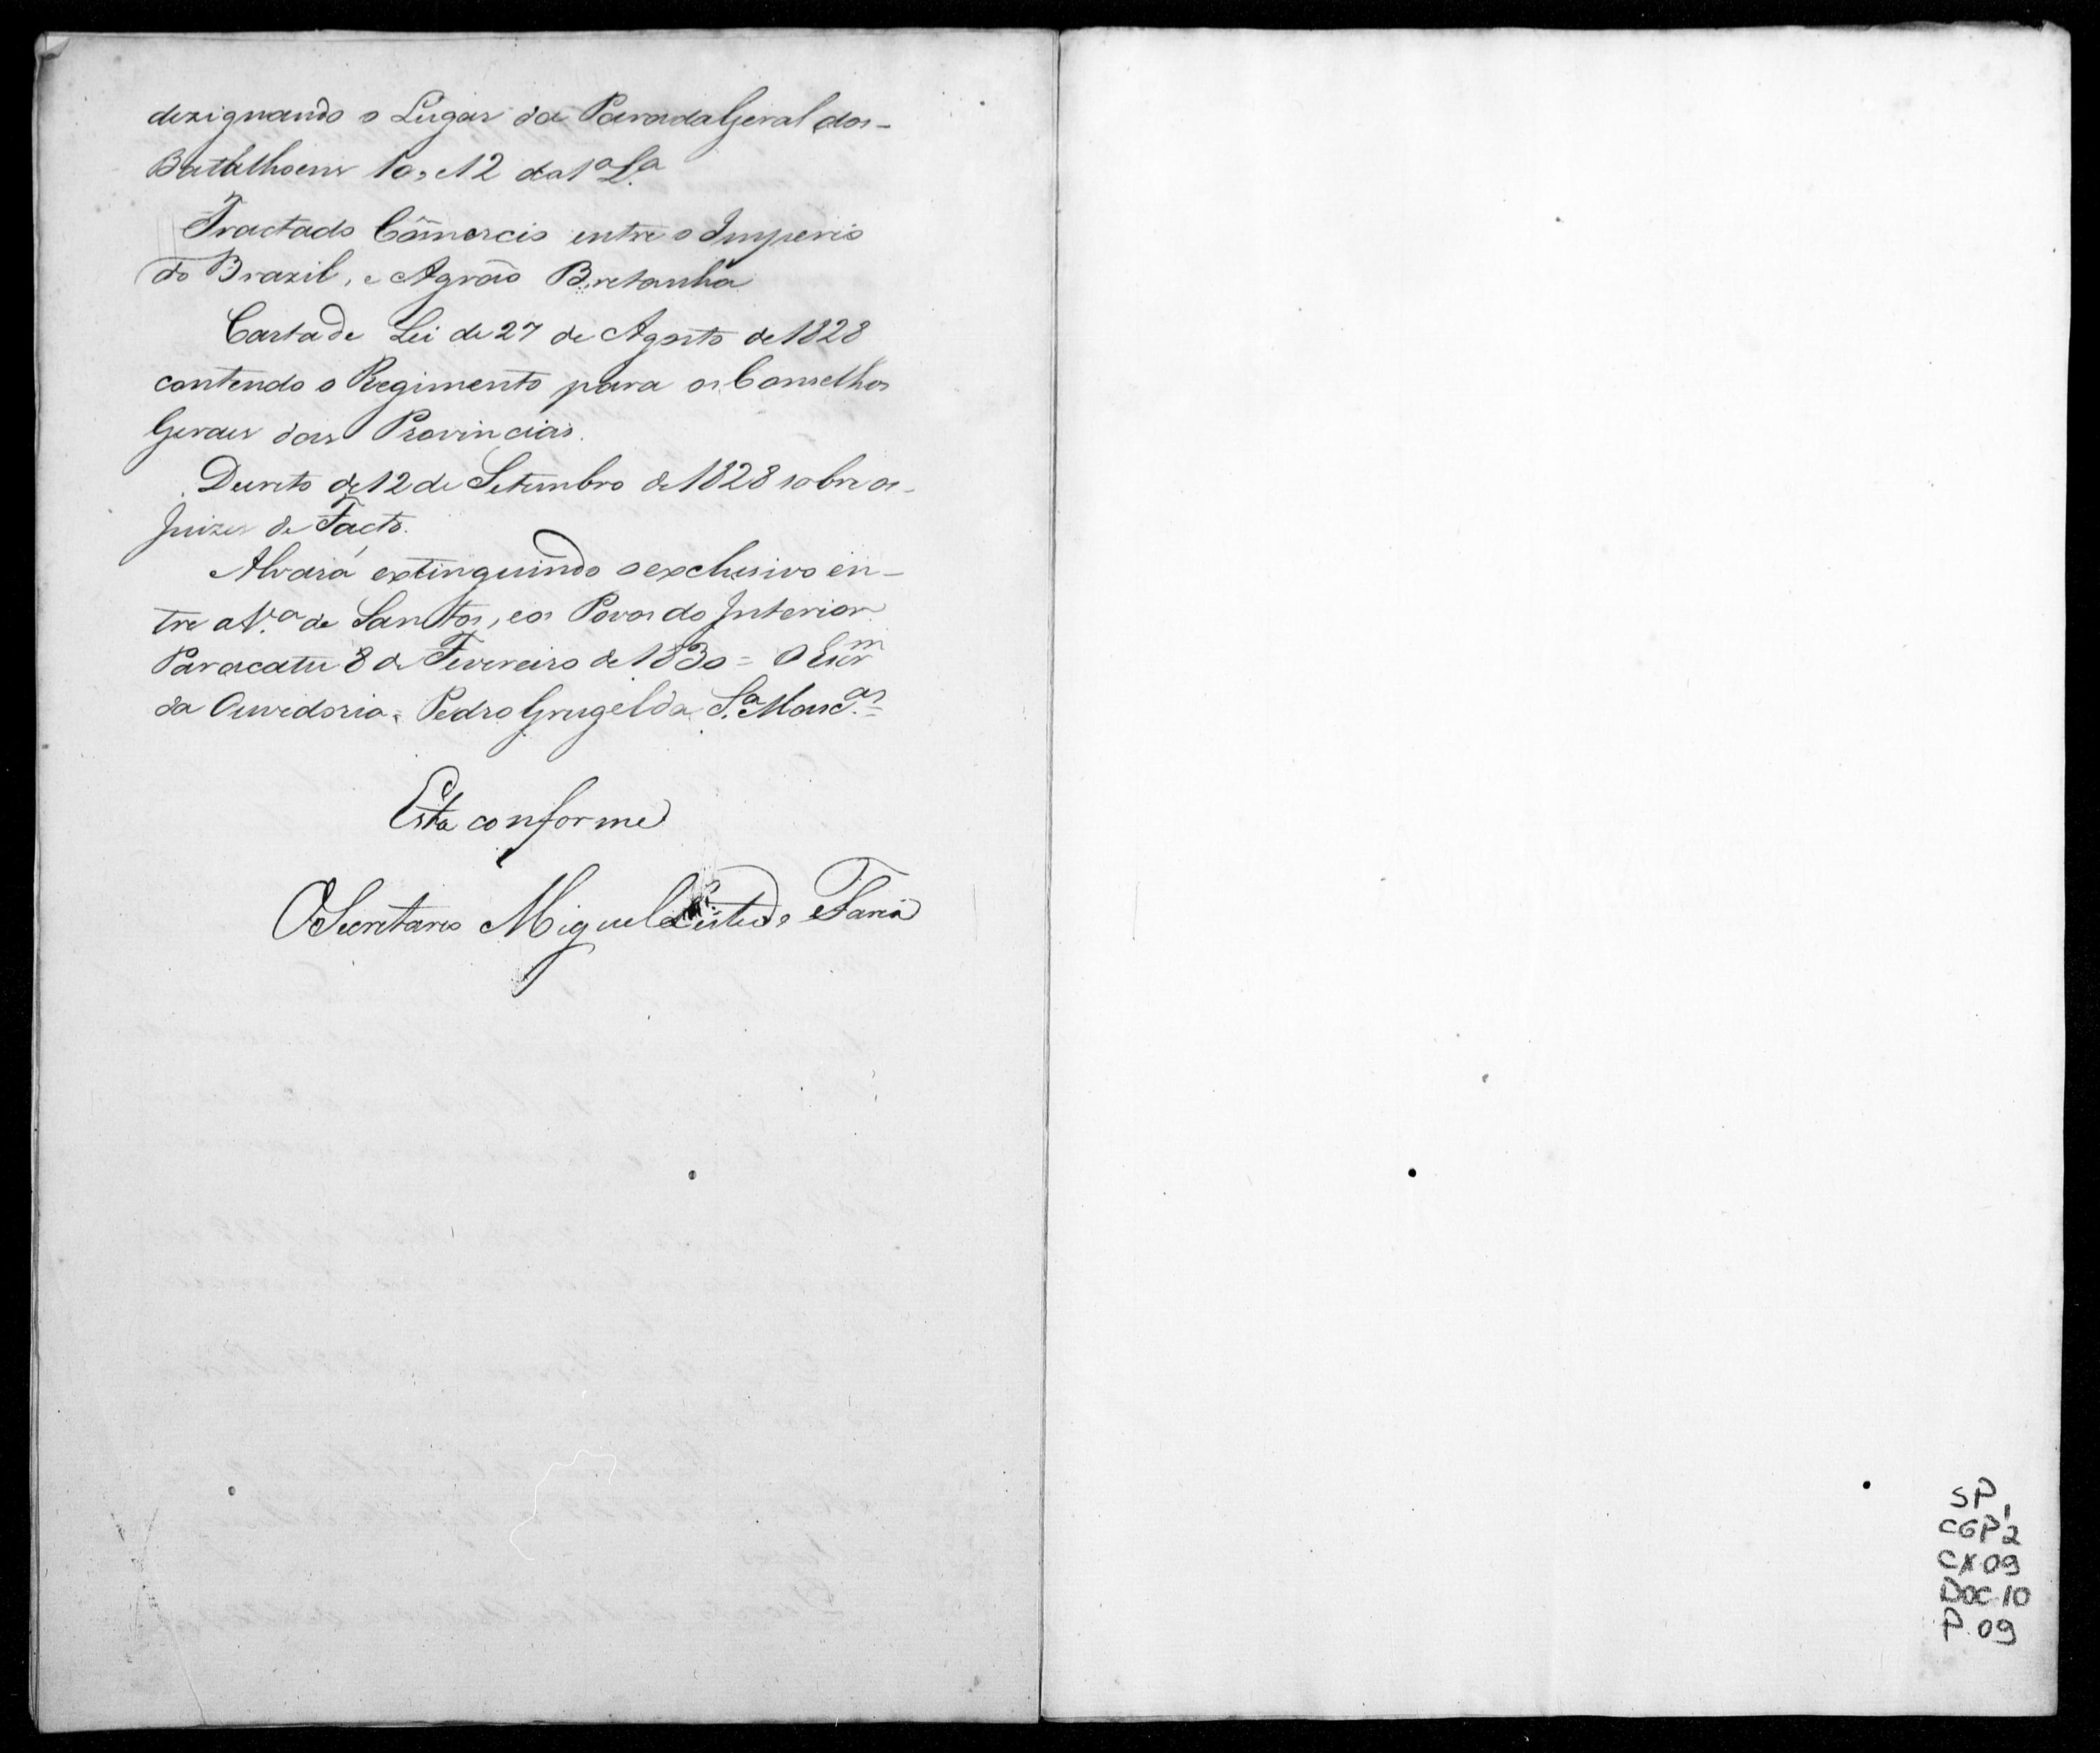 dezignando o Lugar da Parada Geral dos-
Batalhoens 10, e 12 da 1ª L.ª
Tractado Cõmercio entre o Imperio
do Brazil, e Agrão Bretanha
Carta de Lei de 27 de Agosto de 1828
contendo o Regimento para os Conselhos
Geraes das Provincias.
Decreto de 12 de Setembro de 1828 sobre os-
Juizes de Facto.
Alvará extinguindo o exclusivo en-
tre a V.ª de Santos, e os Povos do Interior.
Paracatu 8 de Fevereiro de 1830 = O Escr.m
da Ouvidoria. Pedro Grugel da S.ª Masc.as =
Esta conforme
O Secretario Miguel de Faria
SP,
CGP'2
CX 09
DOC.10
P. 09